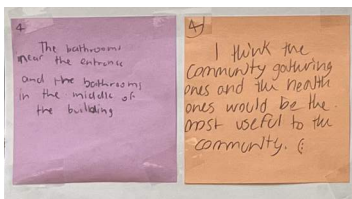 4
The bathrooms
near the entrance
and the bathrooms
in the middle of
the building
4
I think the
community gathuring
ones and the health
ones would be the
most useful to the
community. (: